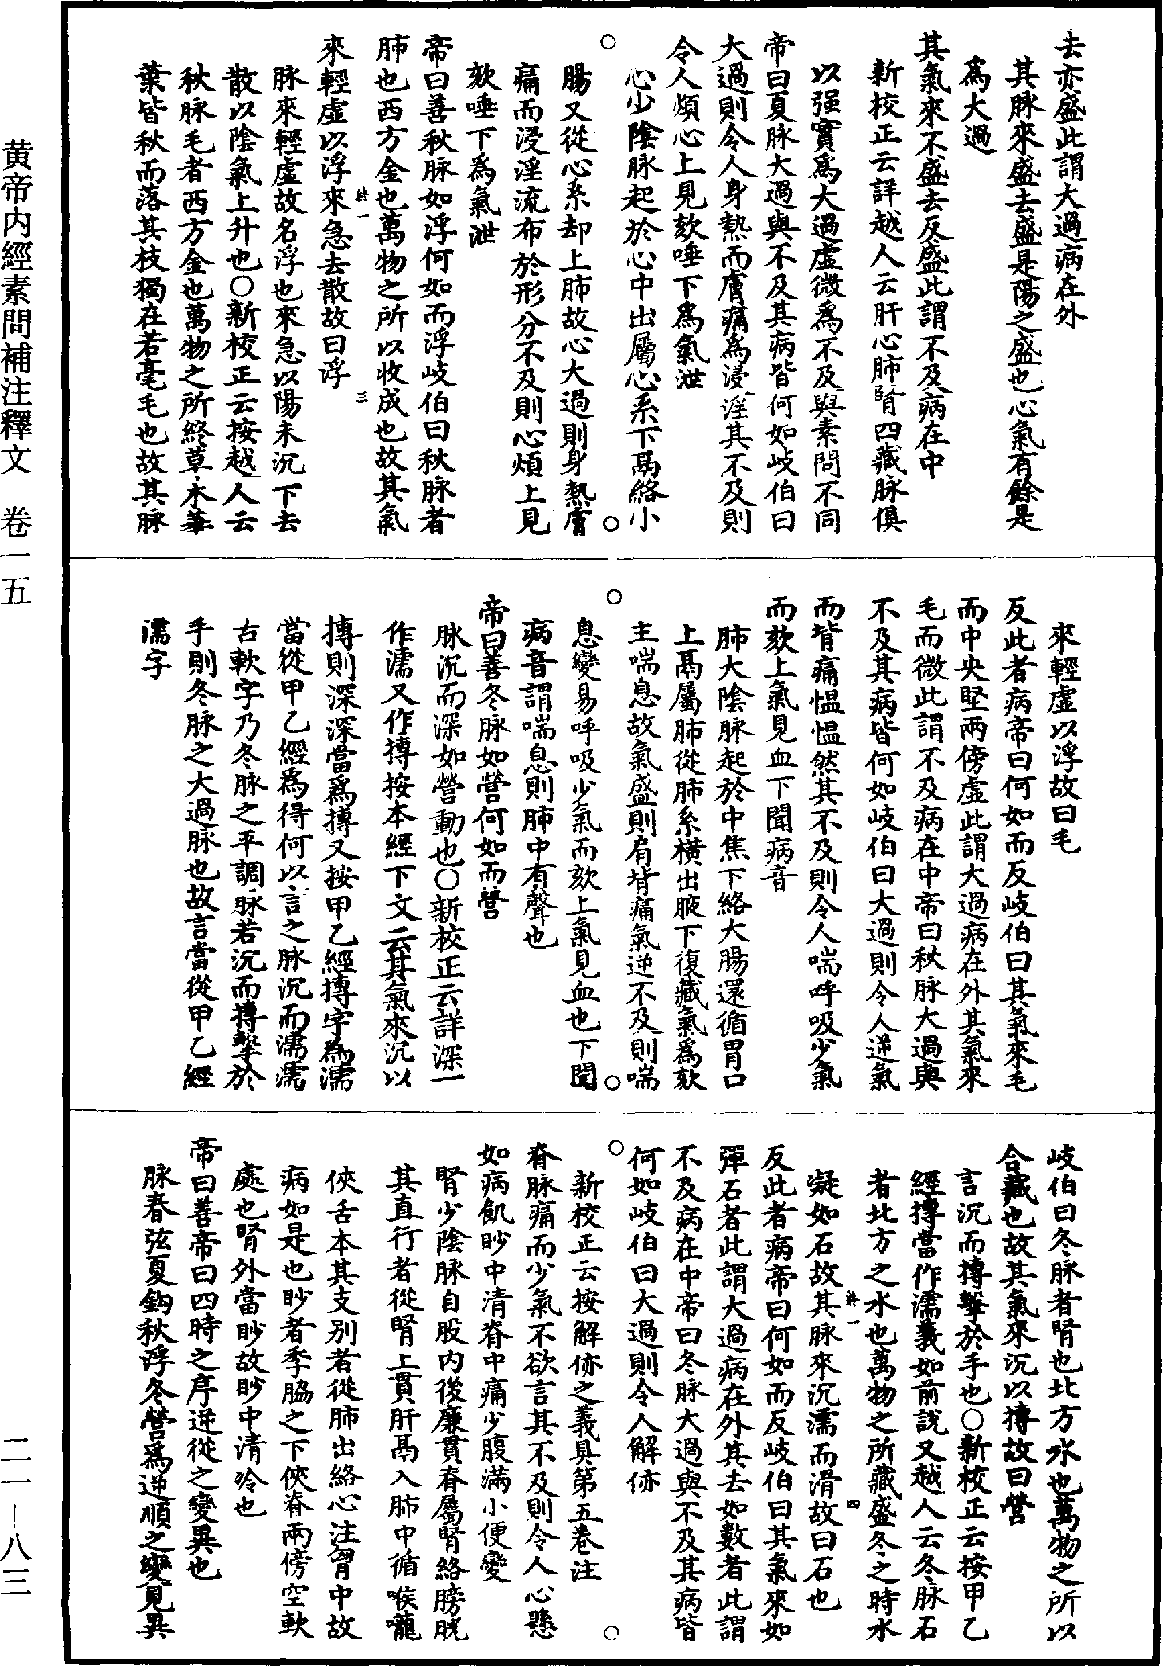 去亦盛此謂大過病在外
其脉來盛去盛是陽之盛也心氣有餘是
爲大過
其氣來不盛去反盛此謂不及病在中
新校正云詳越人云肝心肺腎四藏脉俱
以强實爲大過虛微爲不及與素問不同
帝曰夏脉大過與不及其病皆何如岐伯曰
大過則令人身熱而膚痛爲浸淫其不及則
令人煩心上見欬唾下爲氣泄
心少陰脉起於心中出屬心系下鬲絡小
腸又從心系却上肺故心大過則身熱膚
痛而浸淫流布於形分不及則心煩上見
欬唾下爲氣泄
帝曰善秋脉如浮何如而浮岐伯曰秋脉者
肺也西方金也萬物之所以收成也故其氣
來輕虛以浮來急去散故曰浮
脉來輕虛故名浮也來急以陽未沉下去
散以陰氣上升也○新校正云按越人云
秋脉毛者西方金也萬物之所終草木華
葉皆秋而落其枝獨在若毫毛也故其脉
來輕虛以浮故曰毛
反此者病帝曰何如而反岐伯曰其氣來毛
而中央堅兩傍虛此謂大過病在外其氣來
毛而微此謂不及病在中帝曰秋脉大過與
不及其病皆何如岐伯曰大過則令人逆氣
而背痛慍慍然其不及則令人喘呼吸少氣
而欬上氣見血下聞病音
肺大陰脉起於中焦下絡大腸還循胃口
上鬲屬肺從肺系橫出腋下復藏氣爲欬
主喘息故氣盛則肩背痛氣逆不及則喘
息變易呼吸少氣而欬上氣見血也下聞
病音謂喘息則肺中有聲也
帝曰善冬脉如營何如而營
脉沉而深如營動也○新校正云詳深一
作濡又作搏按本經下文云其氣來沉以
搏則深深當爲搏又按甲乙經搏字爲濡
當從甲乙經爲得何以言之脉沉而濡濡
古軟字乃冬脉之平調脉若沉而搏擊於
手則冬脉之大過脉也故言當從甲乙經
濡字
岐伯曰冬脉者腎也北方水也萬物之所以
合藏也故其氣來沉以搏故曰營
言沉而搏擊於手也○新校正云按甲乙
經搏當作濡義如前說又越人云冬脉石
者北方之水也萬物之所藏盛冬之時水
凝如石故其脉來沉濡而滑故曰石也
反此者病帝曰何如而反岐伯曰其氣來如
彈石者此謂大過病在外其去如數者此謂
不及病在中帝曰冬脉大過與不及其病皆
何如岐伯曰大過則令人解㑊
新校正云按解㑊之義具第五卷注
脊脉痛而少氣不欲言其不及則令人心懸
如病飢䏚中清脊中痛少腹滿小便變
腎少陰脉自股內後廉貫脊屬腎絡膀胱
其直行者從腎上貫肝鬲入肺中循喉嚨
俠舌本其支別者從肺出絡心注胷中故
病如是也䏚者季脇之下俠脊兩傍空軟
處也腎外當䏚故䏚中清冷也
帝曰善帝曰四時之序逆從之變異也
脉春弦夏鈎秋浮冬營爲逆順之變見異
黄帝内經素問補注釋文 卷一五
二一—八三